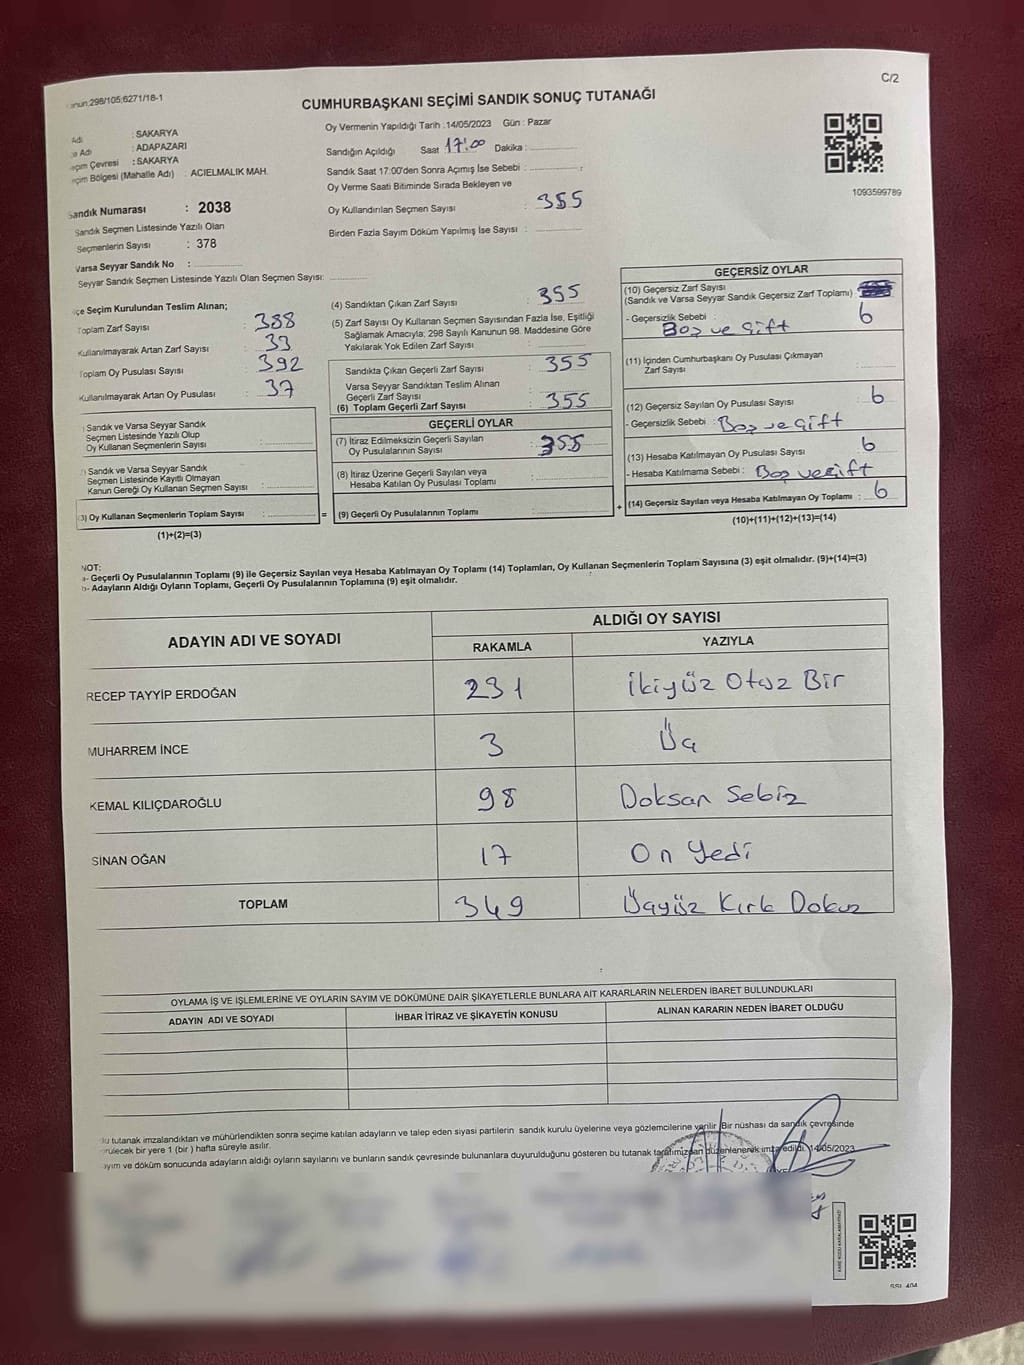 C/2
298/105;6271/18-1
CUMHURBAŞKANI SEÇİMİ SANDIK SONUÇ TUTANAĞI
Adı : SAKARYA
Adı : ADAPAZARI
Çevresi : SAKARYA
Bölgesi (Mahalle Adı) : ACIELMALIK MAH.
Sandık Numarası : 2038
Sandık Seçmen Listesinde Yazılı Olan
Seçmenlerin Sayısı : 378
Varsa Seyyar Sandık No :
Seyyar Sandık Seçmen Listesinde Yazılı Olan Seçmen Sayısı:
Oy Vermenin Yapıldığı Tarih :14/05/2023 Gün : Pazar
Sandığın Açıldığı Saat 17:00 Dakika :
Sandık Saat 17:00'den Sonra Açımış İse Sebebi :
Oy Verme Saati Bitiminde Sırada Bekleyen ve
Oy Kullandırılan Seçmen Sayısı : 355
Birden Fazla Sayım Döküm Yapılmış İse Sayısı :
1093599789
Seçim Kurulundan Teslim Alınan;
Toplam Zarf Sayısı : 388
Kullanılmayarak Artan Zarf Sayısı : 33
Toplam Oy Pusulası Sayısı : 392
Kullanılmayarak Artan Oy Pusulası : 37
Sandık ve Varsa Seyyar Sandık
Seçmen Listesinde Yazılı Olup
Oy Kullanan Seçmenlerin Sayısı :
Sandık ve Varsa Seyyar Sandık
Seçmen Listesinde Kayıtlı Olmayan
Kanun Gereği Oy Kullanan Seçmen Sayısı :
3) Oy Kullanan Seçmenlerin Toplam Sayısı : =
(1)+(2)=(3)
(4) Sandıktan Çıkan Zarf Sayısı : 355
(5) Zarf Sayısı Oy Kullanan Seçmen Sayısından Fazla İse, Eşitliği
Sağlamak Amacıyla; 298 Sayılı Kanunun 98. Maddesine Göre
Yakılarak Yok Edilen Zarf Sayısı :
Sandıkta Çıkan Geçerli Zarf Sayısı : 355
Varsa Seyyar Sandıktan Teslim Alınan
Geçerli Zarf Sayısı :
(6) Toplam Geçerli Zarf Sayısı : 355
GEÇERLİ OYLAR
(7) İtiraz Edilmeksizin Geçerli Sayılan
Oy Pusulasının Sayısı : 355
(8) İtiraz Üzerine Geçerli Sayılan veya
Hesaba Katılan Oy Pusulası Toplamı :
(9) Geçerli Oy Pusulalarının Toplamı : +
GEÇERSİZ OYLAR
(10) Geçersiz Zarf Sayısı
(Sandık ve Varsa Seyyar Sandık Geçersiz Zarf Toplamı) :
- Geçersizlik Sebebi : 6
Boş ve Çift
(11) İçinden Cumhurbaşkanı Oy Pusulası Çıkmayan
Zarf Sayısı :
(12) Geçersiz Sayılan Oy Pusulası Sayısı : 6
- Geçersizlik Sebebi : Boş ve Çift
(13) Hesaba Katılmayan Oy Pusulası Sayısı : 6
- Hesaba Katılmama Sebebi : Boş ve Çift
(14) Geçersiz Sayılan veya Hesaba Katılmayan Oy Toplamı : 6
(10)+(11)+(12)+(13)=(14)
NOT:
a- Geçerli Oy Pusulalarının Toplamı (9) ile Geçersiz Sayılan veya Hesaba Katılmayan Oy Toplamı (14) Toplamları, Oy Kullanan Seçmenlerin Toplam Sayısına (3) eşit olmalıdır. (9)+(14)=(3)
b- Adayların Aldığı Oyların Toplamı, Geçerli Oy Pusulalarının Toplamına (9) eşit olmalıdır.
ADAYIN ADI VE SOYADI
ALDIĞI OY SAYISI
RAKAMLA YAZIYLA
RECEP TAYYİP ERDOĞAN 231 İkiyüz Otuz Bir
MUHARREM İNCE 3 Üç
KEMAL KILIÇDAROĞLU 98 Doksan Sekiz
SİNAN OĞAN 17 On Yedi
TOPLAM 349 Üçyüz Kırk Dokuz
OYLAMA İŞ VE İŞLEMLERİNE VE OYLARIN SAYIM VE DÖKÜMÜNE DAİR ŞİKAYETLERLE BUNLARA AİT KARARLARIN NELERDEN İBARET BULUNDUKLARI
ADAYIN ADI VE SOYADI İHBAR İTİRAZ VE ŞİKAYETİN KONUSU ALINAN KARARIN NEDEN İBARET OLDUĞU
tutanak imzalandıktan ve mühürlendikten sonra seçime katılan adayların ve talep eden siyasi partilerin sandık kurulu üyelerine veya gözlemcilerine verilir. Bir nüshası da sandık çevresinde
bir yere 1 (bir) hafta süreyle asılır.
ve döküm sonucunda adayların aldığı oyların sayılarını ve bunların sandık çevresinde bulunanlara duyurulduğunu gösteren bu tutanak tarafımızdan düzenlenerek imza edildi. 14/05/2023